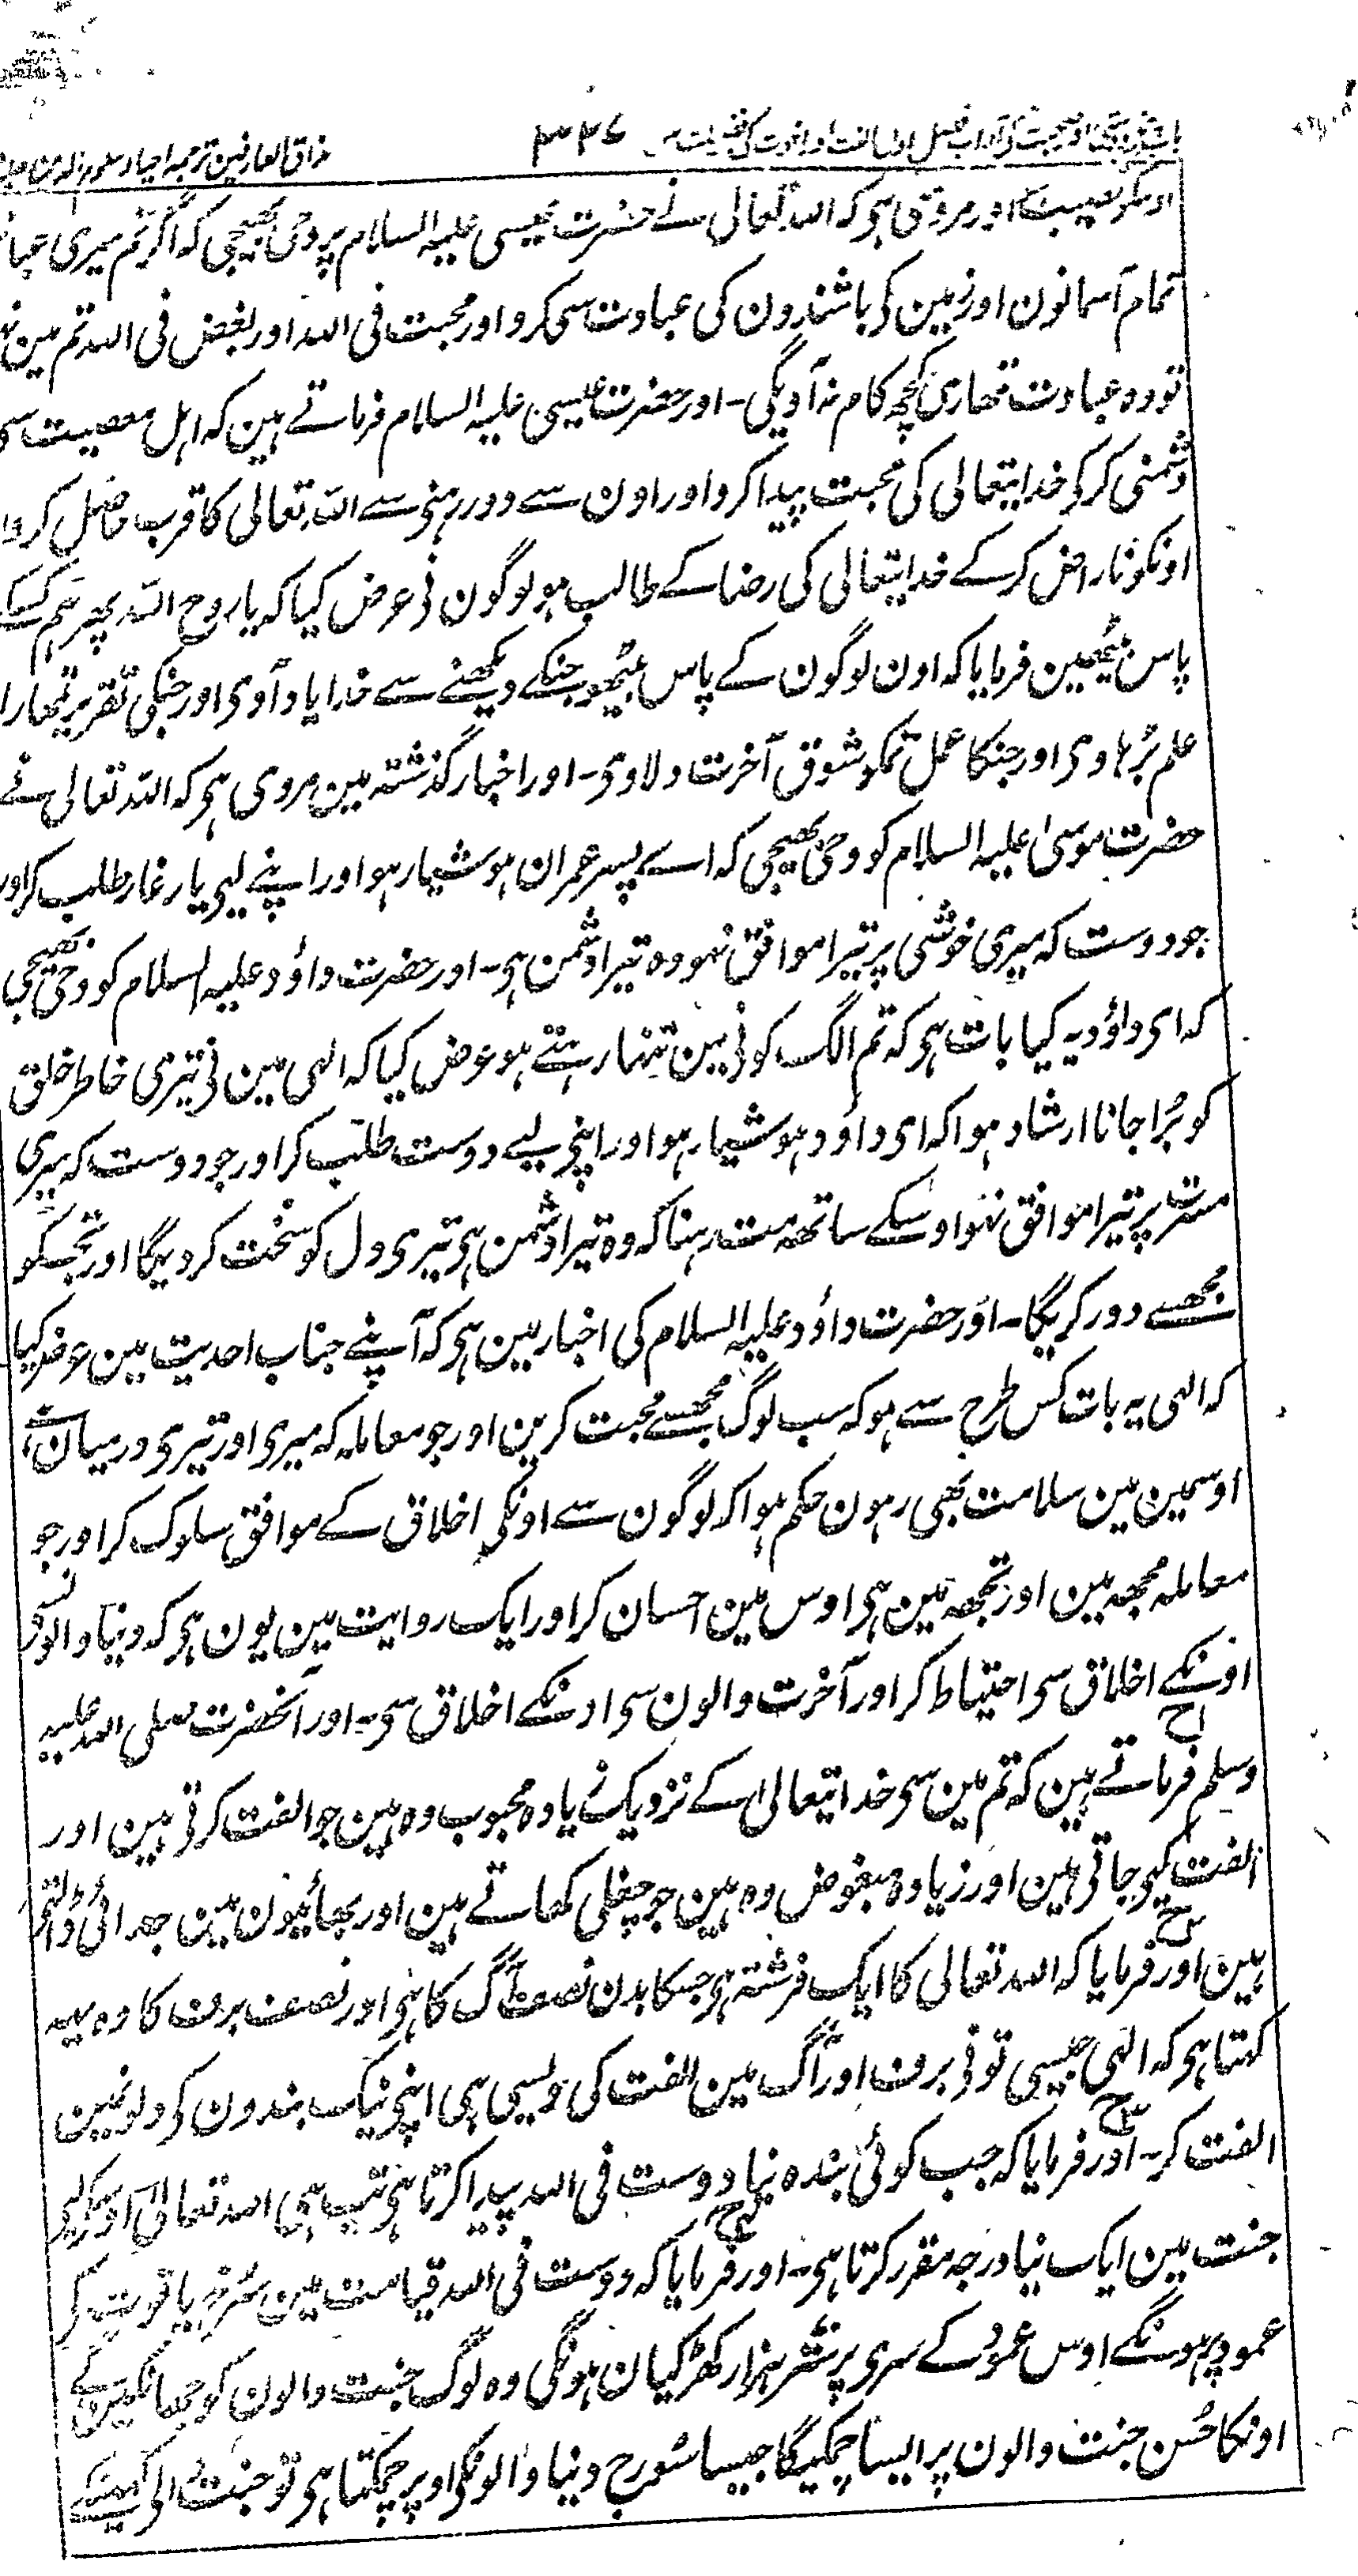 باب پنجم صحبت کی آداب فصل اول الفت اور اخوت کی فضیلت ۳۳۶ مذاق العارفین ترجمہ احیاء علوم الدین جلد
اوسکو نصیب کر اور مروی ہی کہ اللہ تعالی نے حضرت عیسی علیہ السلام پر وحی بھیجی کہ اگر تم میری عبادت
تمام آسمانون اور زمین کی باشندون کی عبادت سی کرو اور محبت فی اللہ اور بغض فی اللہ تم مین
تو وہ عبادت تمھاری کچھ کام نہ آویگی - اور حضرت عیسی علیہ السلام فرماتے ہین کہ اہل معصیت سی
دشمنی کر کر خدایتعالی کی محبت پیدا کرو اور اون سے دور رہنی سے اللہ تعالی کا قرب حاصل کرو
اونکو ناراض کر کے خدایتعالی کی رضا کے طالب ہو لوگون نی عرض کیا کہ یا روح اللہ پھر ہم کسکے
پاس بیٹھین فرمایا کہ اون لوگون کے پاس بیٹھو جنکے دیکھنے سے خدا یاد آوی اور جنکی تقریر تمھارا
علم بڑہاوی اور جنکا عمل تمکو شوق آخرت دلاوی - اور اخبار گذشتہ مین مروی ہی کہ اللہ تعالی نے
حضرت موسیٰ علیہ السلام کو وحی بھیجی کہ اے پسر عمران ہوشیار ہو اور اپنے لیی یار غار طلب کر اور
جو دوست کہ میری خوشی پر تیرا موافق نہو وہ تیرا دشمن ہی - اور حضرت داؤد علیہ السلام کو وحی بھیجی
کہ ای داؤد یہ کیا بات ہی کہ تم الگ کونی مین تنہا رہتے ہو عرض کیا کہ الہی مین نی تیری خاطر خلق
کو بُرا جانا ارشاد ہوا کہ ای داؤد ہوشیار ہو اور اپنی لیے دوست طلب کر اور جو دوست کہ میری
مسرت پر تیرا موافق نہو اوسکے ساتھ مت رہنا کہ وہ تیرا دشمن ہی تیری دل کو سخت کر دیگا اور تجھکو
مجھسے دور کریگا - اور حضرت داؤد علیہ السلام کی اخبار مین ہی کہ آپنے جناب احدیت مین عرض کیا
کہ الہی یہ بات کس طرح سے ہو کہ سب لوگ مجھسے محبت کرین اور جو معاملہ کہ میری اور تیری درمیان ہے
اوسمین مین سلامت بھی رہون حکم ہوا کہ لوگون سے اونکی اخلاق کے موافق سلوک کر اور جو
معاملہ مجھ مین اور تجھ مین ہی اوس مین احسان کر اور ایک روایت مین یون ہی کہ دنیا والونسے
اونکے اخلاق سی احتیاط کر اور آخرت والون سی اونکے اخلاق سی - اور آنحضرت صلی اللہ علیہ
وسلم فرماتے ہین کہ تم مین سی خدایتعالی کے نزدیک زیادہ محبوب وہ ہین جو الفت کرتی ہین اور
الفت کیی جاتی ہین اور زیادہ مبغوض وہ ہین جو چغلی کھاتے ہین اور بھائیون مین جدائی ڈالتی
ہین اور فرمایا کہ اللہ تعالی کا ایک فرشتہ ہی جسکا بدن نصف آگ کا ہی اور نصف برف کا وہ یہ
کہتا ہی کہ الہی جیسی تونی برف اور آگ مین الفت کی ویسی ہی اپنی نیک بندون کی دلونمین
الفت کر - اور فرمایا کہ جب کوئی بندہ نیا دوست فی اللہ پیدا کرتا ہی تب ہی اللہ تعالی اوسکے لیی
جنت مین ایک نیا درجہ مقرر کرتا ہی - اور فرمایا کہ دوست فی اللہ قیامت مین سرخ یاقوت کی
عمود پر ہونگے اوس عمود کے سری پر ستر ہزار کھڑکیان ہونگی وہ لوگ جنت والون کو جھانکین گے
اونکا حُسن جنت والون پر ایسا چمکیگا جیسا سورج دنیا والونکی اوپر چمکتا ہی تو جنت والی کہینگے